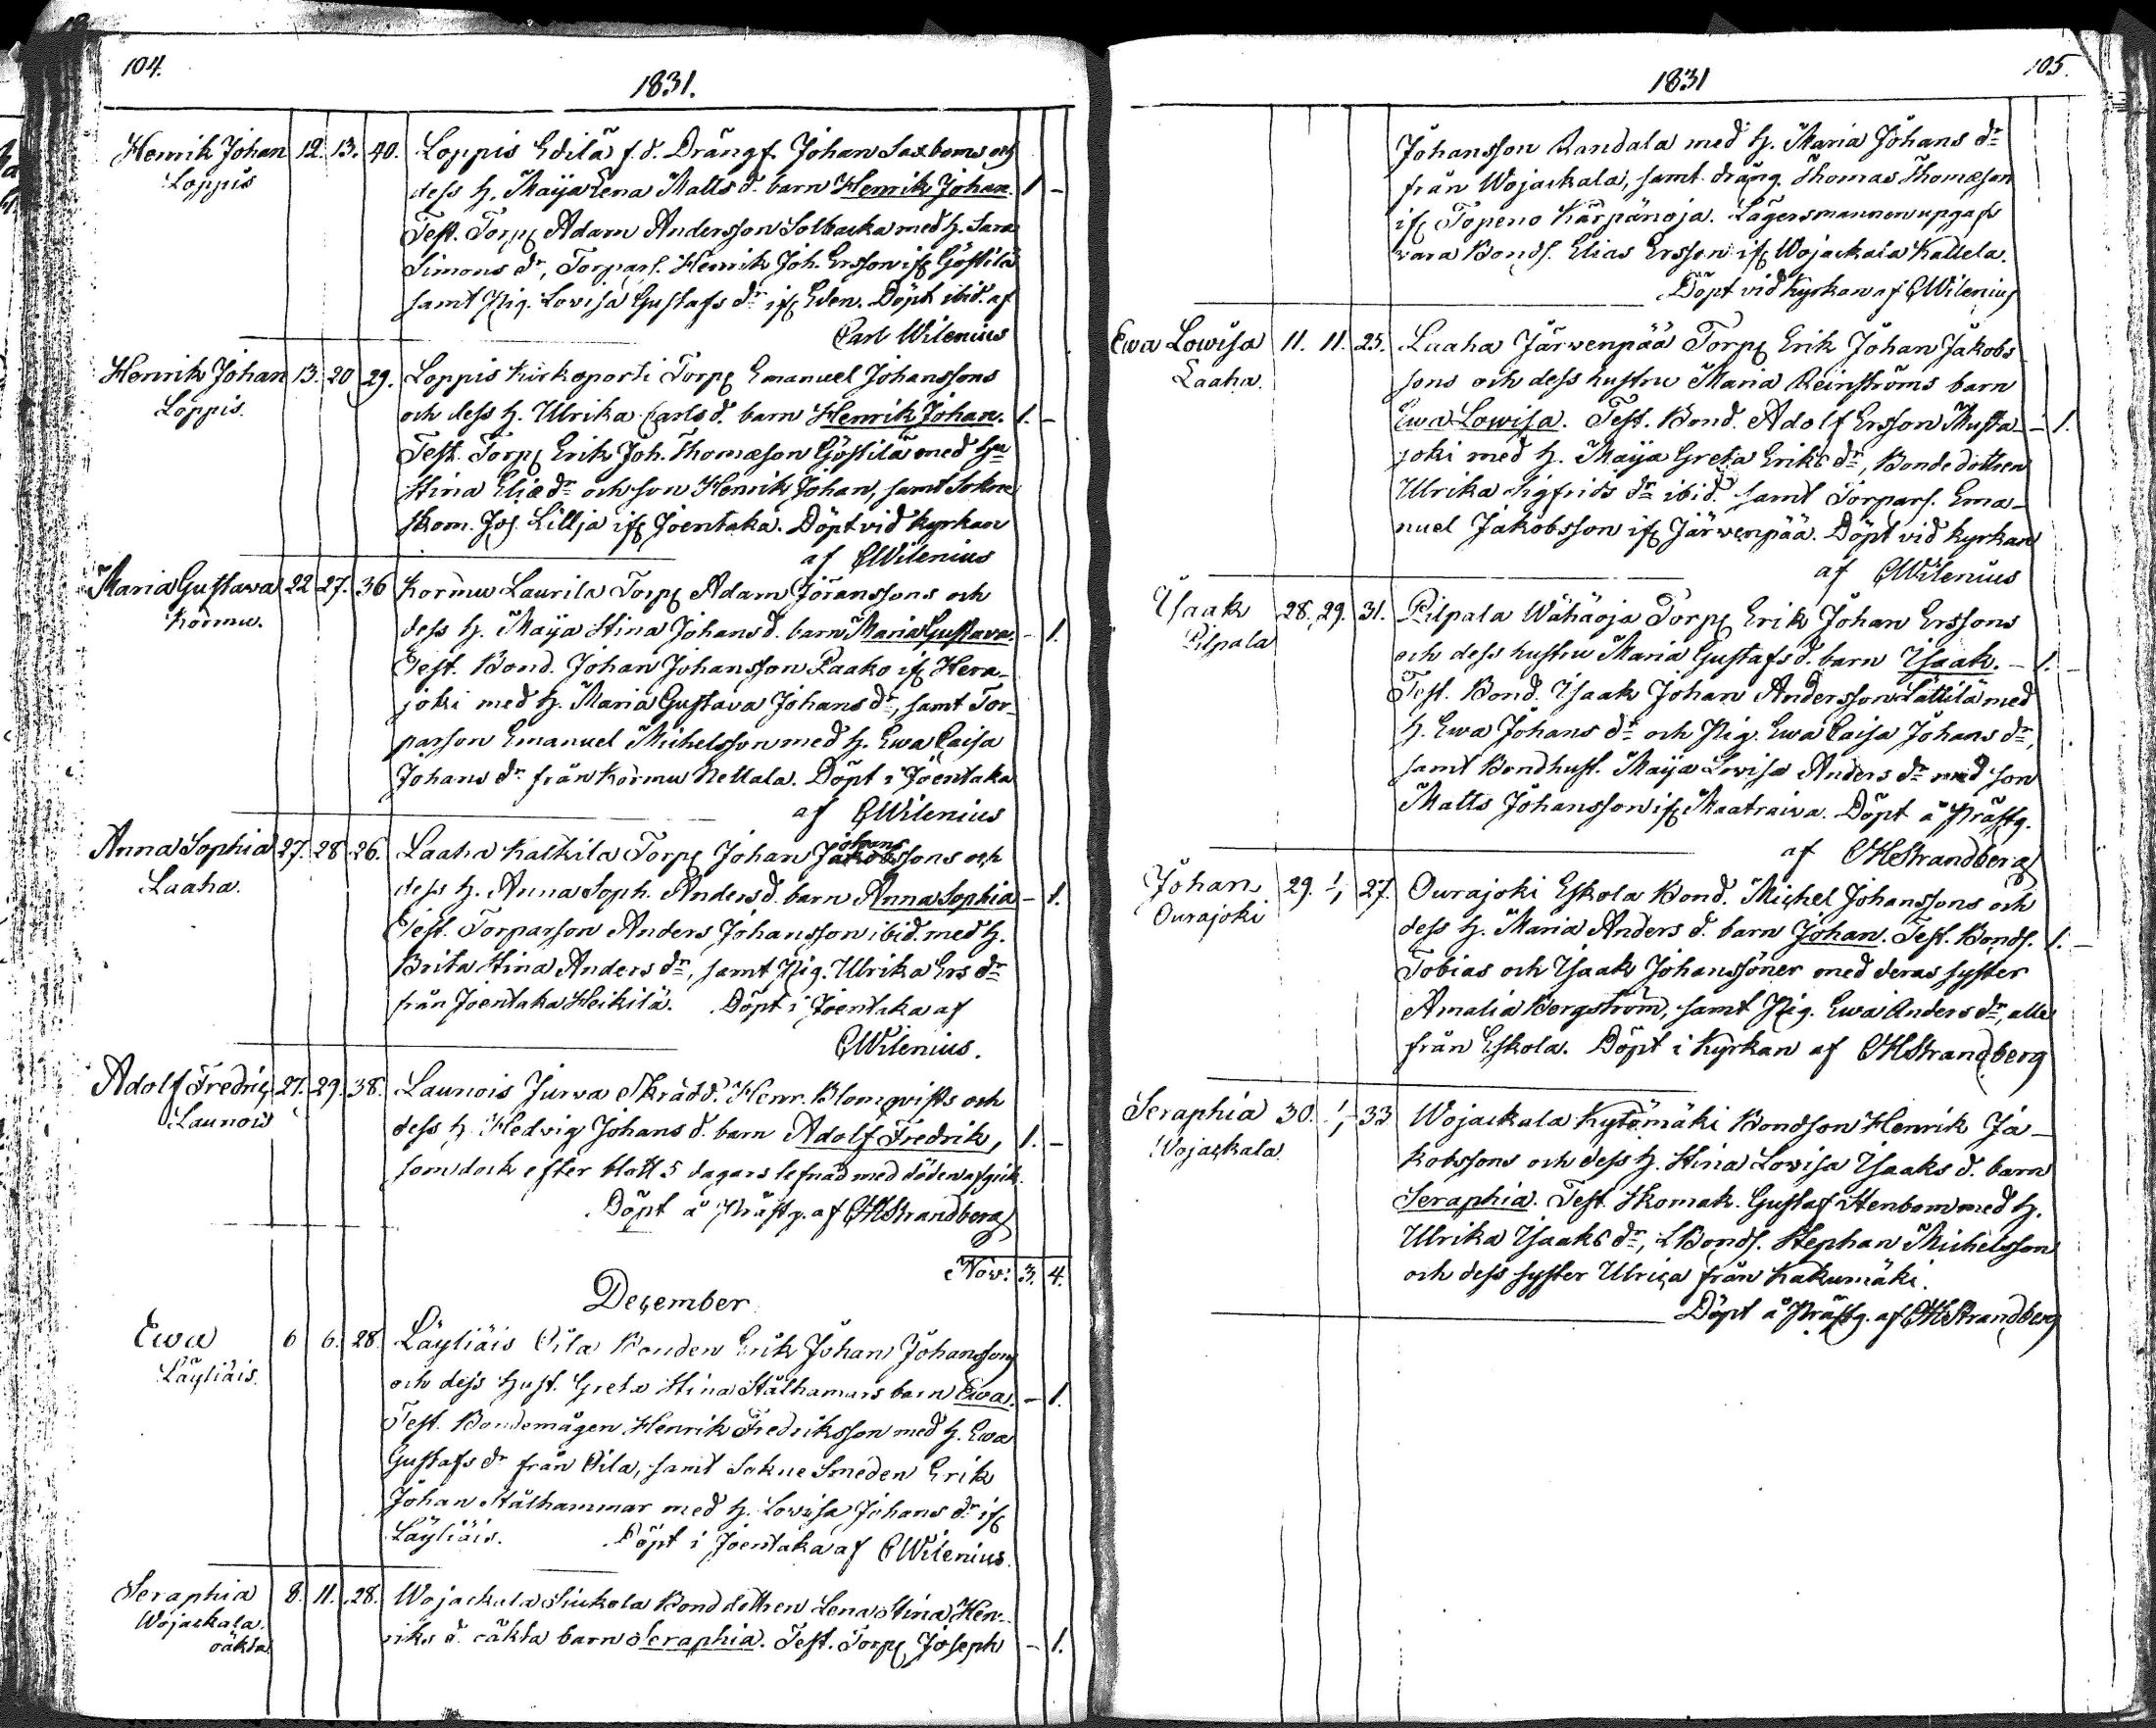 104.
1831.
Henrik Johan 12. 13. 40. Loppis Edilä f.d. Drängs Johan Saxboms och
Loppis dess h. Maija Lena Matts d. barn Henrik Johan. 1 -
Test. Torp. Adam Andersson Solbacka med h. Sara
Simons dr, Torpars. Henrik Joh. Ersson ifr Göstilä
samt Pig. Lovisa Gustafs dr ifr Eden. Döpt ibid. af
Carl Wilenius
Henrik Johan 13. 20 29. Loppis Kirkoporti Torp. Emanuel Johanssons
Loppis. och dess h. Ulrika Carls d. barn Henrik Johan. 1. -
Test. Torp. Erik Joh. Thomæson Göstilä med hu
Stina Eliæ dr och son Henrik Johan, samt Sokne
skom. Jos. Lillja ifr Joentaka. Döpt vid kyrkan
af CWilenius
Maria Gustava 22 27. 36 Kormu Laurila Torp. Adam Jöranssons och
Kormu. dess h. Maija Stina Johans d. barn Maria Gustava. - 1.
Test. Bond. Johan Johansson Paako ifr Hera-
joki med h. Maria Gustava Johans dr, samt Tor-
parson Emanuel Michelsson med h. Ewa Caisa
Johans dr från Kormu Nettala. Döpt i Joentaka
af CWilenius
Anna Sophia 27. 28 26. Laaha Kalkila Torp. Johan Johanssons och
Laaha. dess h. Anna Soph. Anders d. barn Anna Sophia - 1.
Test. Torparson Anders Johansson ibid. med h.
Brita Stina Anders dr, samt Pig. Ulrika Ers dr
från Joentaka Heikilä. Döpt i Joentaka af
CWilenius.
Adolf Fredric 27. 29. 38. Launois Jurva Skrädd. Henr. Blomqvists och
Launois dess h. Hedvig Johans d. barn Adolf Fredrik, 1. -
som dock efter blott 5 dagars lefnad med döden afgick.
Döpt å Prästg. af CHStrandberg
Nov: 3. 4.
December
Ewa 6 6. 28. Läyliäis Pila Bonden Erik Johan Johanssons
Läyliäis. och dess hust. Greta Stina Stålhamars barn Ewa. - 1.
Test. Bondemågen Henrik Fredriksson med h. Ewa
Gustafs dr från Pila, samt Sokne Smeden Erik
Johan Stålhammar med h. Lovisa Johans dr ifr
Läyliäis. Döpt i Joentaka af CWilenius.
Seraphia 8. 11. 28. Wojackala Siukola Bonddottren Lena Stina Hen-
Wojackala. riks d. oäkta barn Seraphia. Test. Torp. Joseph - 1.
oäkta
105.
1831
Johansson Randala med h. Maria Johans dr
från Wojackala, samt dräng. Thomas Thomæson
ifr Topeno Kärpänoja. Lägersmannen upgafs
vara Bonds. Elias Ersson ifr Wojackala Kallela.
Döpt vid kyrkan af CWilenius
Ewa Lowisa 11. 11. 25. Laaha Järvenpää Torp. Erik Johan Jakobs
Laaha. sons och dess hustru Maria Reinströms barn
Ewa Lowisa. Test. Bond. Adolf Ersson Musta- - 1.
joki med h. Maija Greta Eriks dr, Bondedottren
Ulrika Sigfrids dr ibid. samt Torpars. Ema-
nuel Jakobsson ifr Järvenpää. Döpt vid kyrkan
af CWilenius
Isaak 28. 29. 31. Pilpala Wähäoja Torp. Erik Johan Erssons
Pilpala och dess hustru Maria Gustafs d. barn Isaak. - 1. -
Test. Bond. Isaak Johan Andersson Lättilä med
h. Ewa Johans dr och Pig. Ewa Caisa Johans dr,
samt Bondhust. Maija Lovisa Anders dr med son
Matts Johansson ifr Maatraiva. Döpt å Prästg.
af CHStrandberg
Johan 29. 1/1 27. Ourajoki Eskola Bond. Michel Johanssons och
Ourajoki dess h. Maria Anders d. barn Johan. Test. Bonds. 1. -
Tobias och Isaak Johanssöner med deras syster
Amalia Bergström, samt Pig. Ewa Anders dr, alla
från Eskola. Döpt i kyrkan af CHStrandberg
Seraphia 30. 1/1 33 Wojackala Kytömäki Bondson Henrik Ja-
Wojackala. kobssons och dess h. Stina Lovisa Isaaks d. barn
Seraphia. Test. Skomak. Gustaf Stenbom med h.
Ulrika Isaaks dr, Bonds. Stephan Michelsson
och dess syster Ulrica från Kakumäki.
Döpt å Prästg. af CHStrandberg